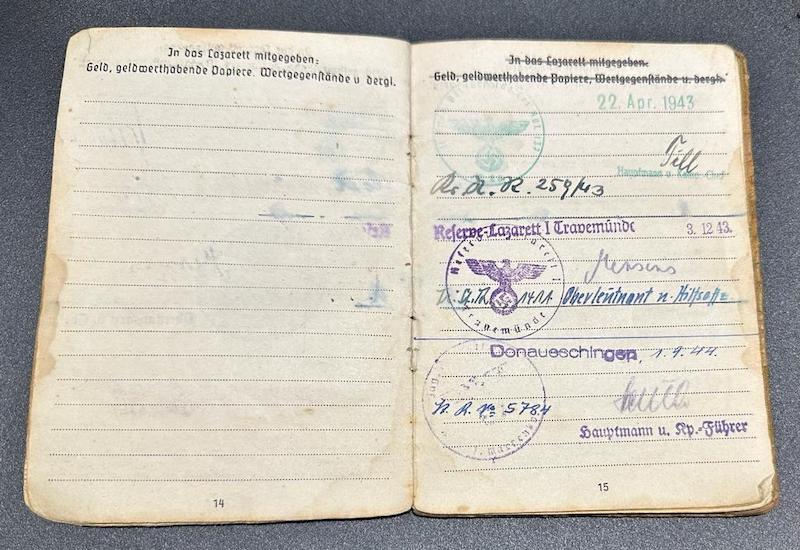 In das Lazarett mitgegeben:
Geld, geldwerthabende Papiere, Wertgegenstände u dergl.
14
In das Lazarett mitgegeben:
Geld, geldwerthabende Papiere, Wertgegenstände u. dergl.
22. Apr. 1943
Till
Hauptmann u. Komp.-Chef
259/43
Reserve-Lazarett I Travemünde 3. 12 43.
Travemünde
1411 Oberleutnant u.
Donaueschingen, 1. 9. 44.
No 5784
Hauptmann u. Kp.-Führer
15